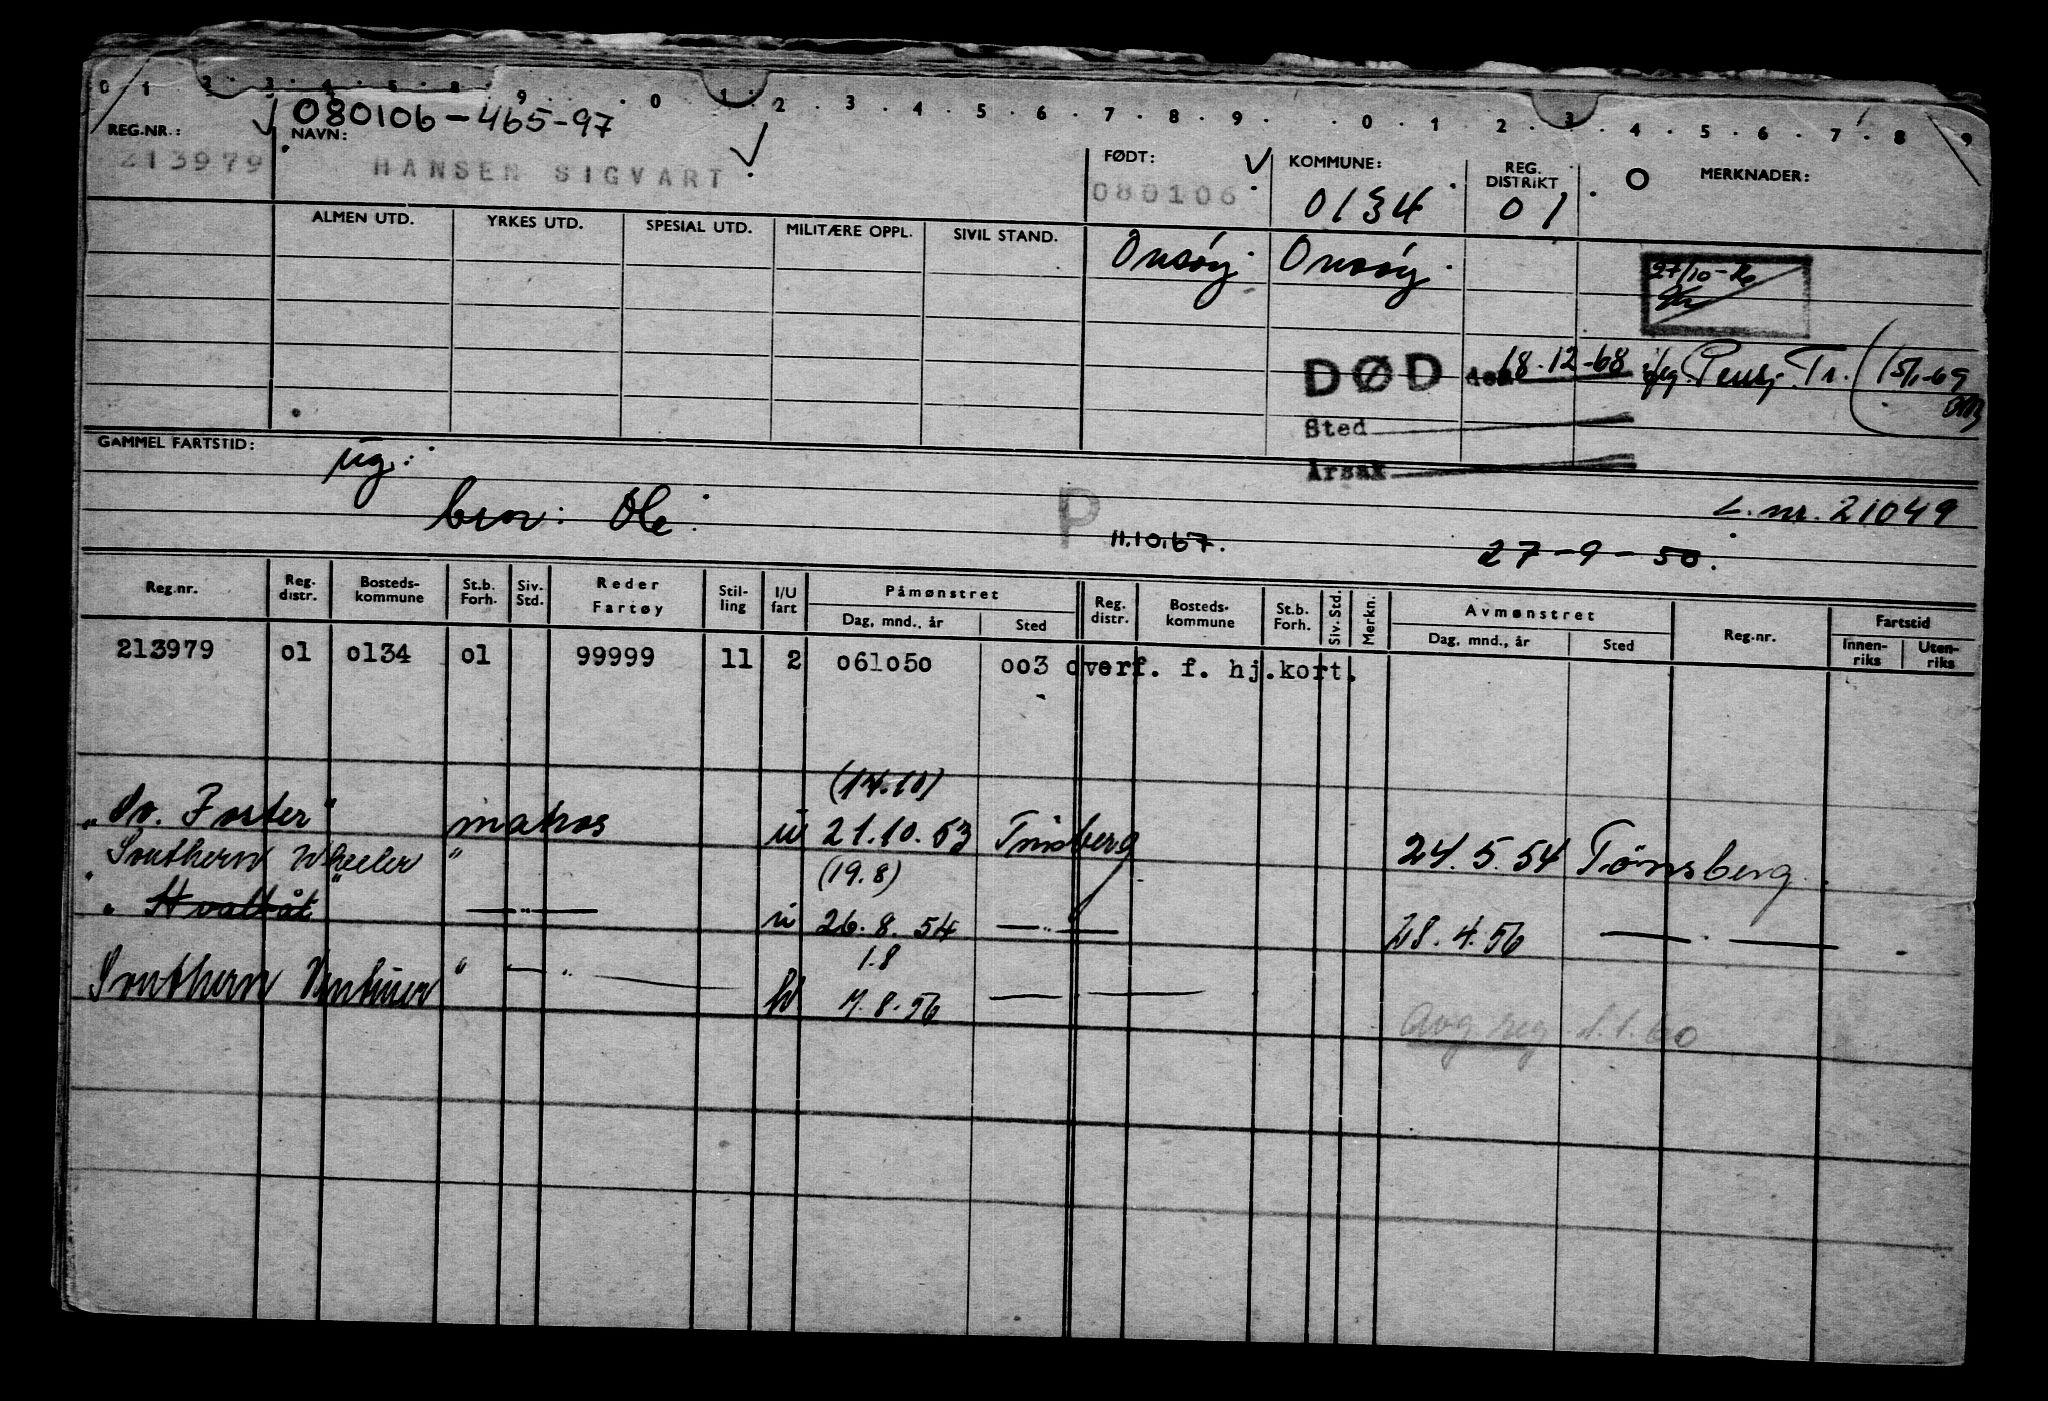 0 1 2 3 4 5 8 9 0 1 2 3 4 5 6 7 8 9 0 1 2 3 4 5 6 7 8 9
080106-465-97
REG.NR.: NAVN: FØDT: KOMMUNE: REG. DISTRIKT MERKNADER:
213979 HANSEN SIGVART 080106 0134 01 O
ALMEN UTD. YRKES UTD. SPESIAL UTD. MILITÆRE OPPL. SIVIL STAND. Onsøy Onsøy
27/10-
DØD den 18.12-68 Pensj. Tr. (15/1-69
Sted
Årsak
GAMMEL FARTSTID: ug:
bror: Ole. P 11.10.67. L.nr. 21049
27-9-50.
Reg.nr. Reg. distr. Bosteds-kommune St.b. Forh. Siv. Std. Reder Fartøy Stil-ling I/U fart Påmønstret Dag, mnd., år Sted Reg. distr. Bosteds-kommune St.b. Forh. Siv. Std. Merkn. Avmønstret Dag, mnd., år Sted Reg.nr. Fartstid Innen-riks Uten-riks
213979 01 0134 01 99999 11 2 061050 003 overf. f. hj.kort.
(17.10)
"So. Foster" matros u 21.10.53 Tønsberg 24.5.54 Tønsberg
"Southern Wheeler" (19.8)
" Hvalbåt" —"— u 26.8.54 —"— 28.4.56 —"—
1.8
Southern Venturer" —"— 7.8.56 —"—
Avg reg 1.1.60